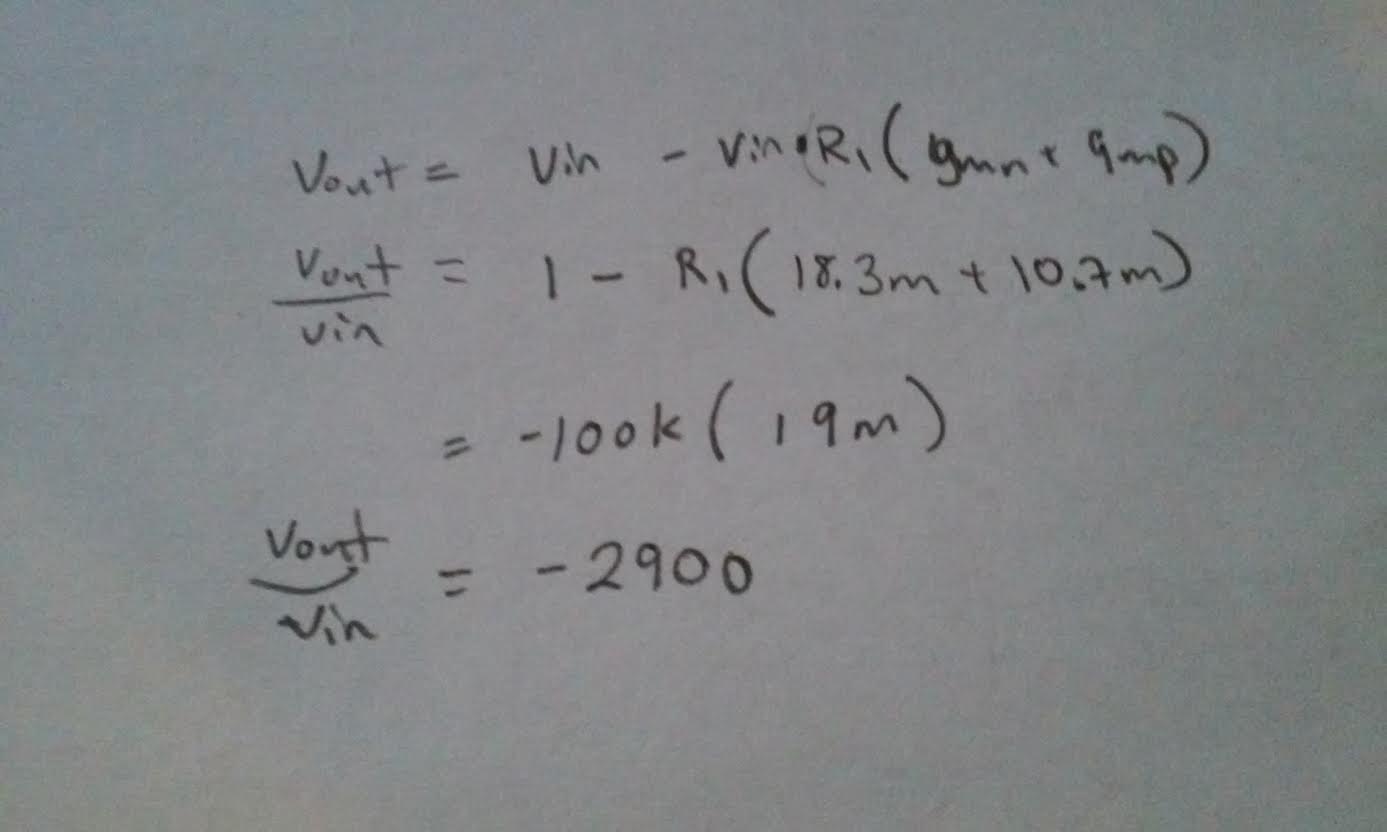 Vout = Vin - Vin•R1 ( gmn + gmp )
Vout / Vin = 1 - R1 ( 18.3m + 10.7m )
= -100k ( 19m )
Vout / Vin = -2900